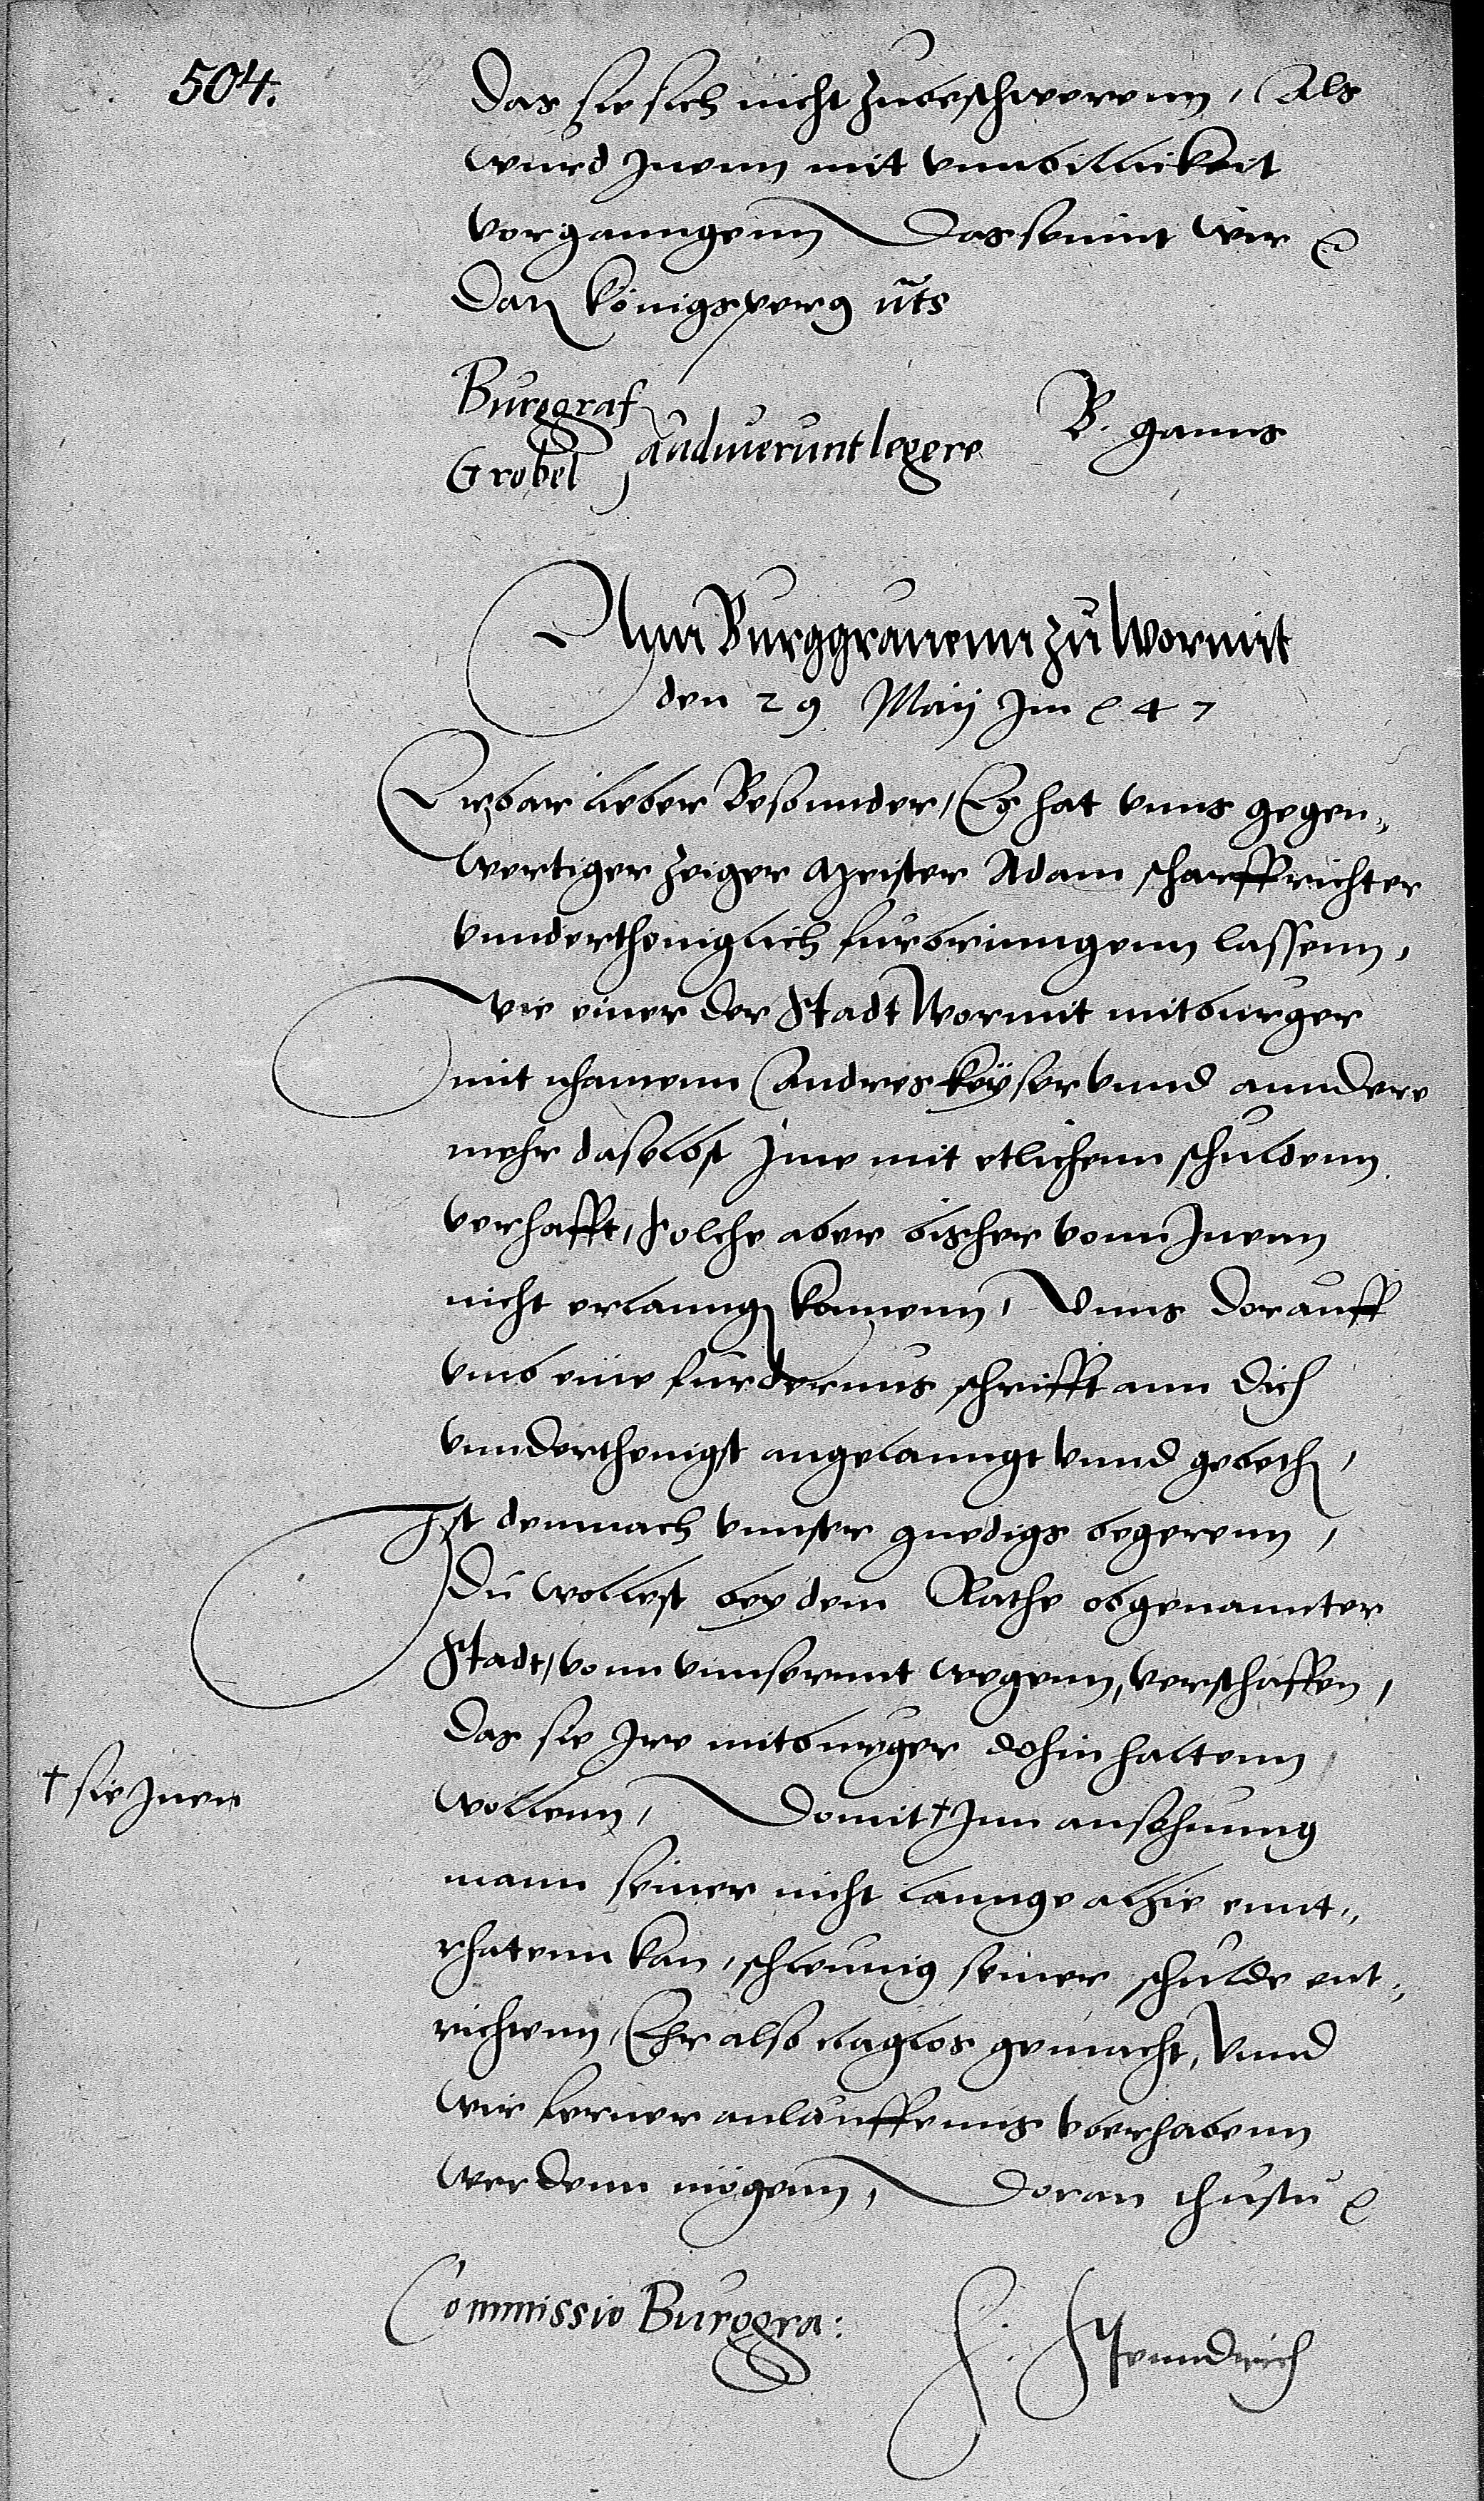 504.
Das sie sich nicht zubeschwerenn, Als
wurd Inenn mit vnnbillickeit
vorganngenn Das seint wir
Dat Königsperg uts
Burggraf
Grobel
audiuerunt legere
B. Ganns
Ann Burggrauenn zu Wormit
den 29 Maij Im 47
Erbar lieber Besonnder, Es hat vnns gegen„
wertiger Zeiger Meister Adam scharffrichter
vnndertheniglich furbrinngenn lassenn,
wie einer der Stadt Wormit mitburger
mit nhamenn Andres Keÿser vnnd anndere
mehr daselbst Ime mit etlichenn schuldenn
verhafft, solche aber bisher vonn Inenn
nicht erlanngen konnenn, Vnns dorauff
vmb eine furdernus schrifft ann dich
vnnderthenigst angelanngt vnnd gebethen,
Ist demnach vnnser gnedigs begerenn,
Du wollest bey dem Rathe obgenannter
Stadt, vonn vnnserent wegenn, verschaffen,
Das sie Ire mitburger dohin haltenn
wollenn, Domit † Inn ansehunng
† sie Inen
mann seiner nicht lannge alhie ennt„
rhatenn kan, schleunig seiner schulde ent„
richtenn, Ehr also claglos gemacht, Vnnd
wir ferner anlauffenns vberhabenn
werdenn mögenn, Doran thustu
Commissio Burggra: